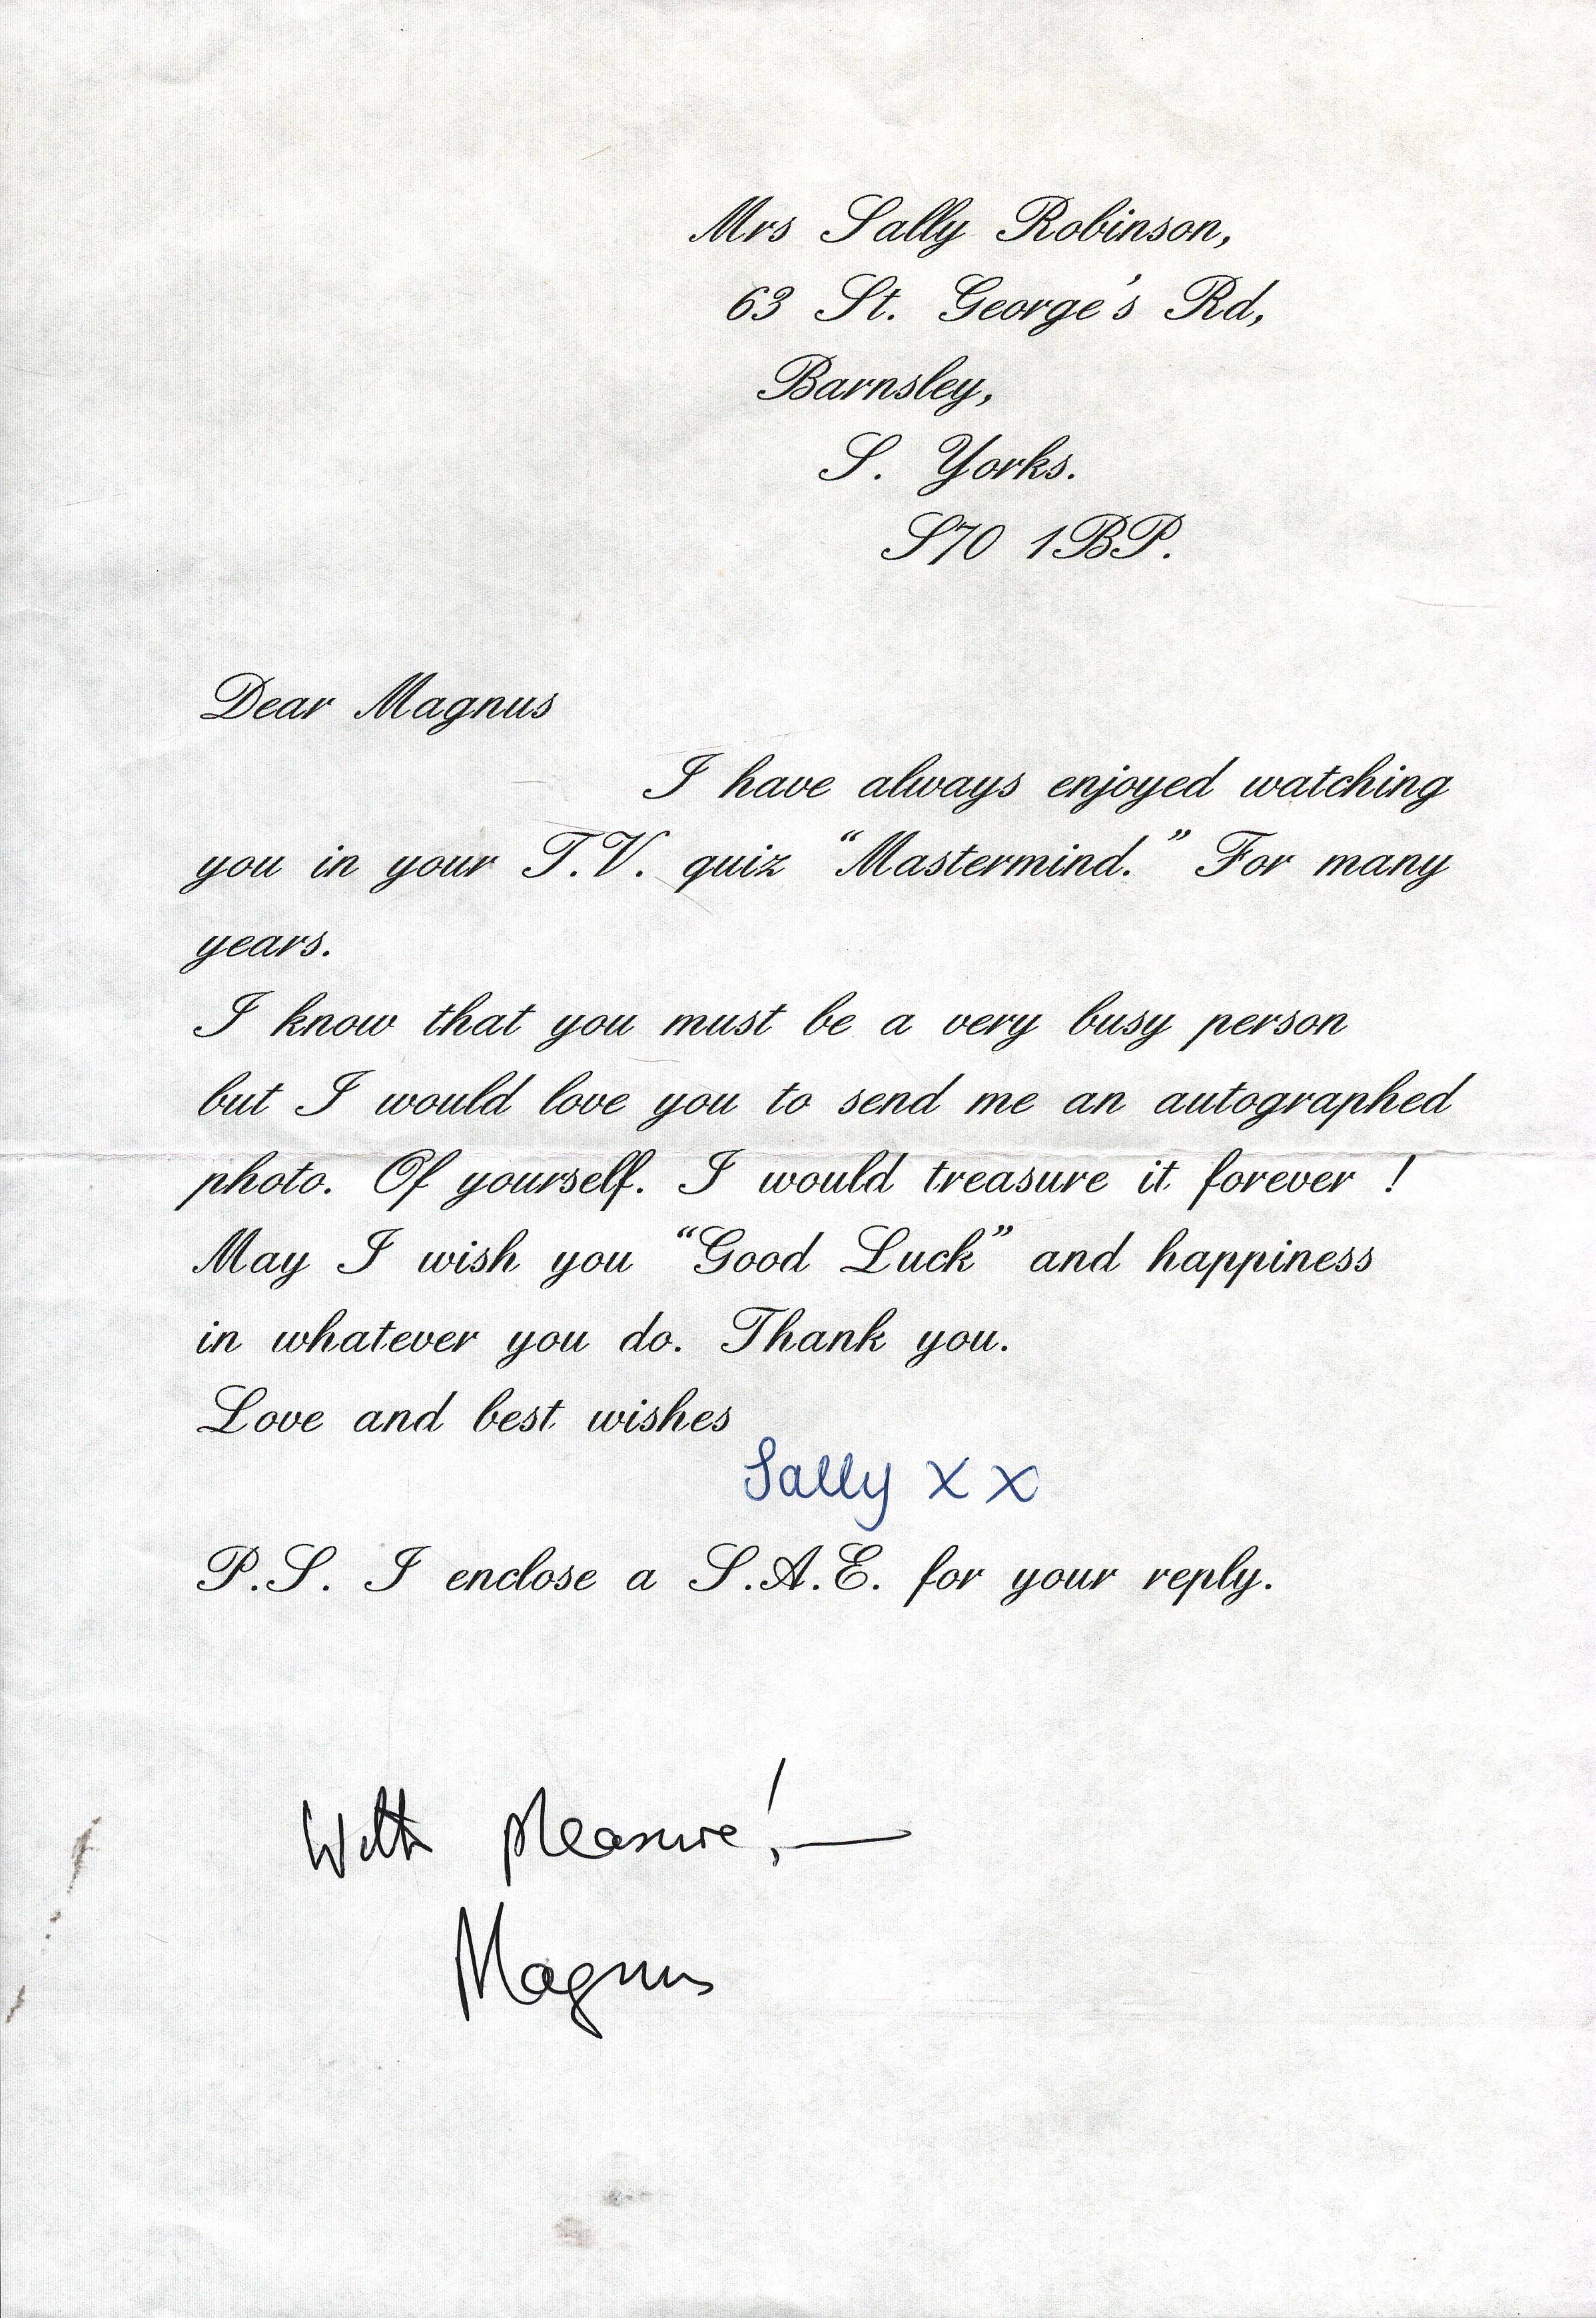 Mrs Sally Robinson,
63 St. George's Rd,
Barnsley,
S. Yorks.
S70 1BP.
Dear Magnus
I have always enjoyed watching
you in your T.V. quiz “Mastermind.” For many
years.
I know that you must be a very busy person
but I would love you to send me an autographed
photo. Of yourself. I would treasure it forever !
May I wish you “Good Luck” and happiness
in whatever you do. Thank you.
Love and best wishes
Sally x x
P.S. I enclose a S.A.E. for your reply.
With pleasure!—
Magnus